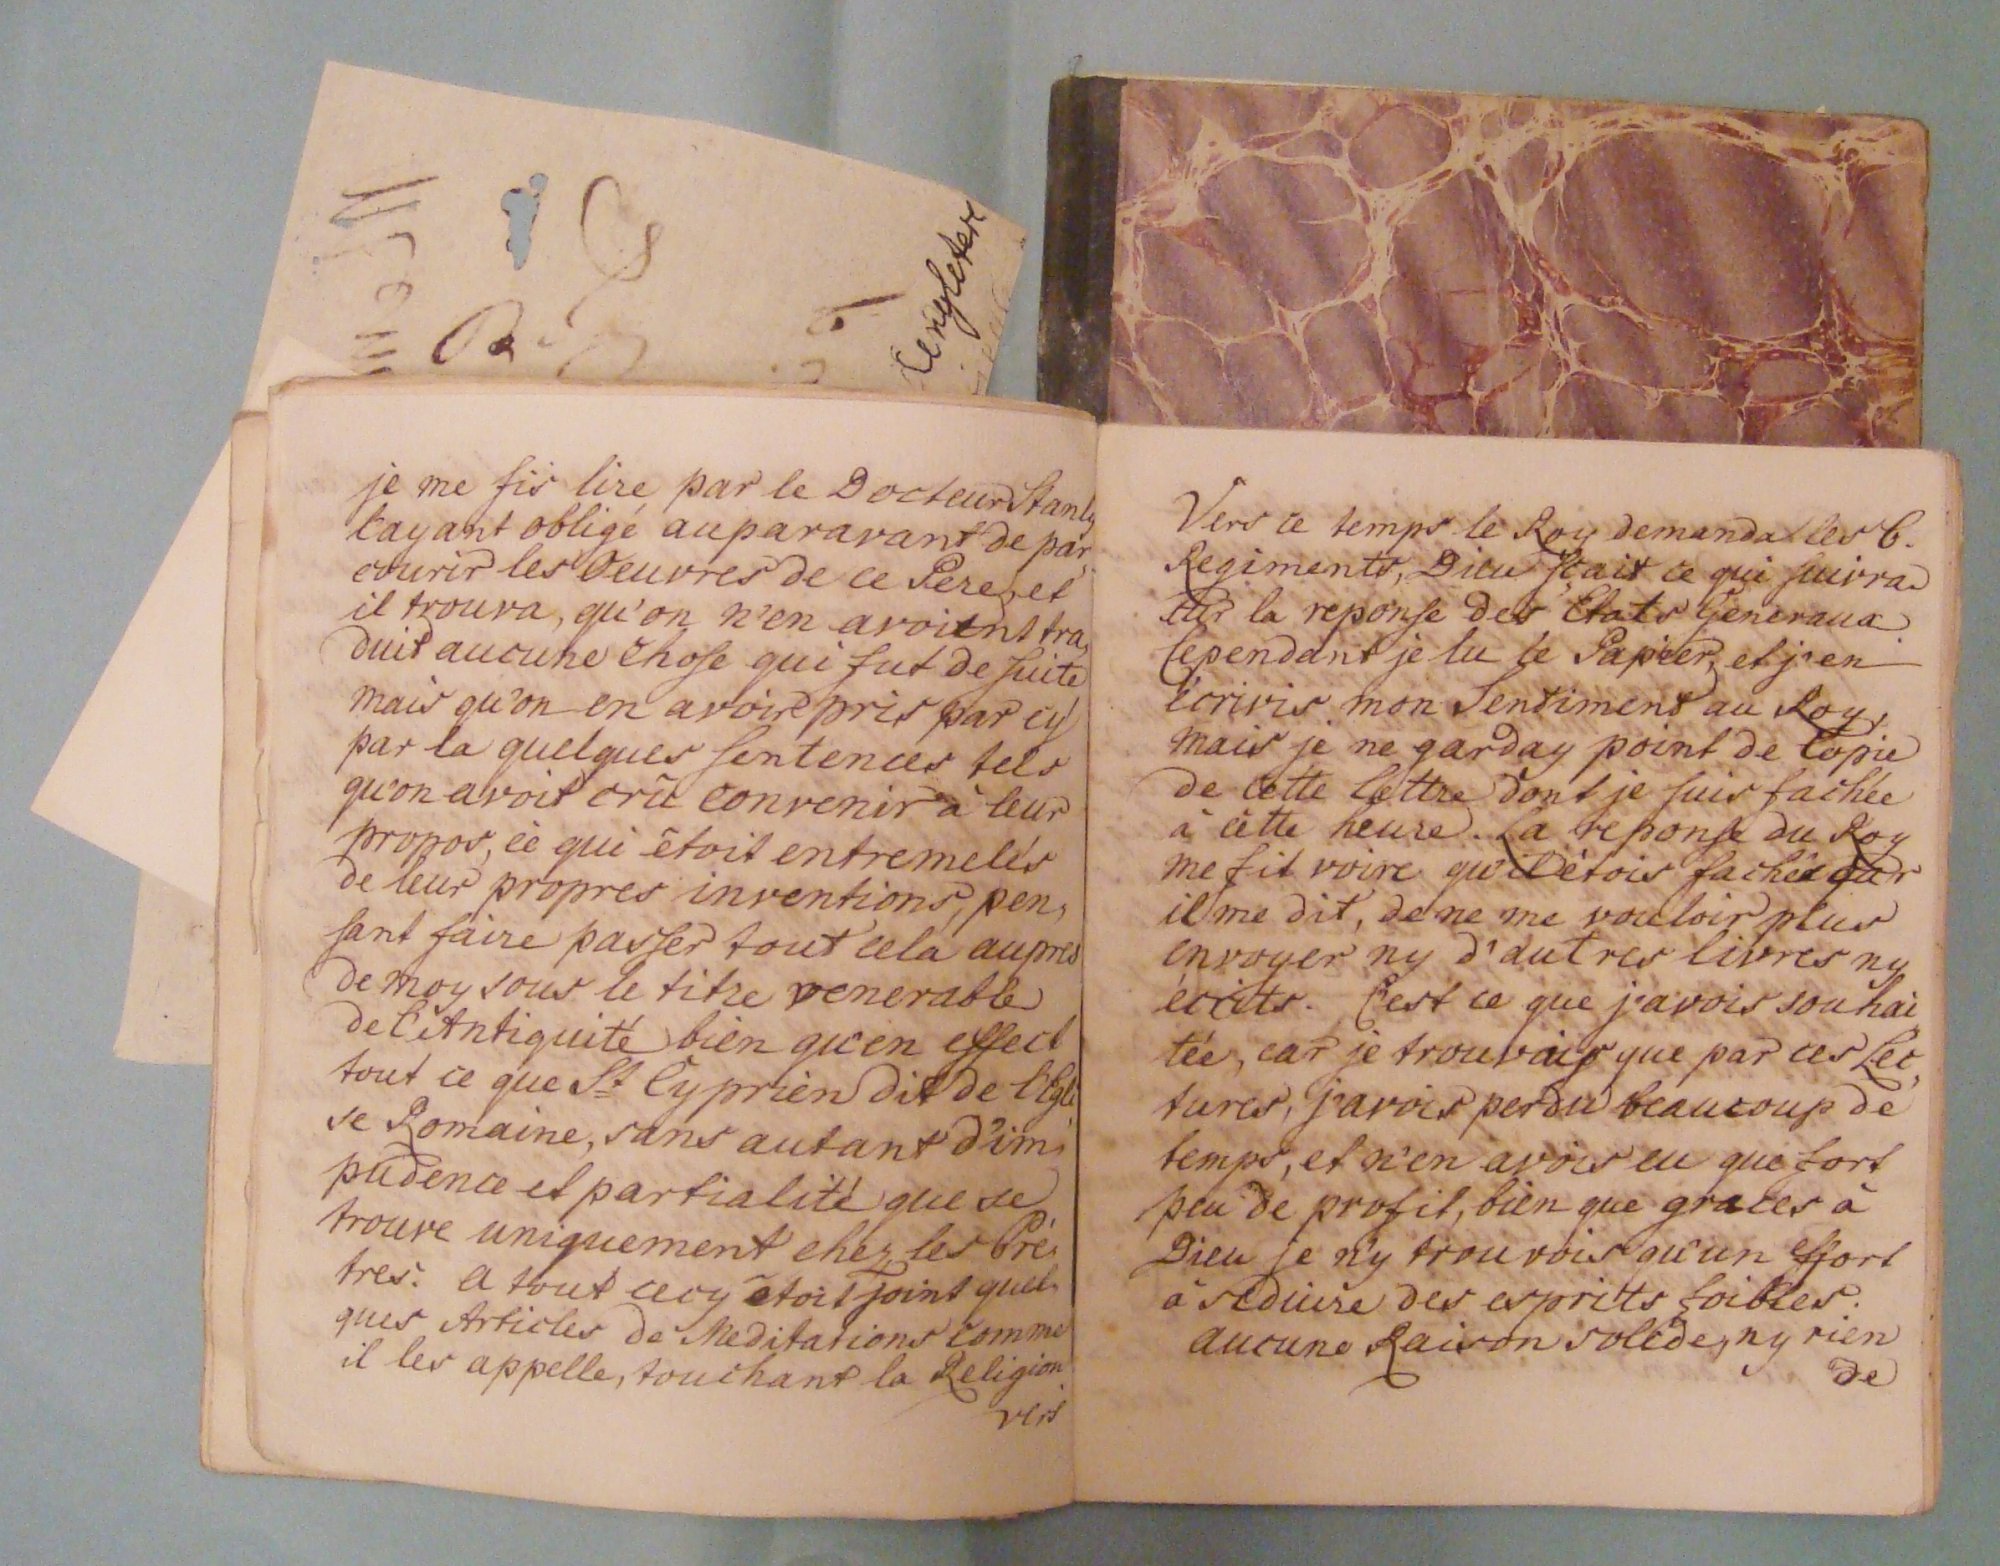 d'engleterr
je me fis lire, par le Docteur Stanly
l'ayant obligé auparavant de par,
courir les Oeuvres de ce Pere, et
il trouva, qu'on n'en avoient tra,
duit aucune chose qui fut de suite
mais qu'on en avoit pris par cy
par la quelques sentences tels
qu'on avoit crû convenir à leur
propos, ce qui étoit entremelés
de leur propres inventions, pen,
sant faire passer tout cela aupres
de moy sous le titre venerable
de l'Antiquité bien qu'en effect
tout ce que St Cyprien dit de l'Egli
se Romaine, sans autant d'im,
pudence et partialité que se
trouve uniquement chez les Prê,
tres. A tout cecy étoit joint quel,
ques Articles de Meditations comme
il les appelle, touchant la Religion
vers
Vers ce temps le Roy demanda les 6.
Regiments, Dieu sçait ce qui suivra
sur la reponse des Etats Generaux.
Cependant je lu le Papier, et j'en
écrivis mon Sentiment au Roy,
mais je ne garday point de Copie
de cette lettre dont je suis fachée
à cette heure. La reponse du Roy
me fit voire qu'il étois fachée car
il me dit, de ne me vouloir plus
envoyer ny d'autres livres ny
écrits. C'est ce que j'avois souhai,
tée, car je trouvais que par ces Lec,
tures, j'avois perdu beaucoup de
temps, et n'en avois eu que fort
peu de profit, bien que graces à
Dieu je n'y trouvois qu'un effort
à seduire des esprits foibles.
aucune Raison solide, ny rien
de